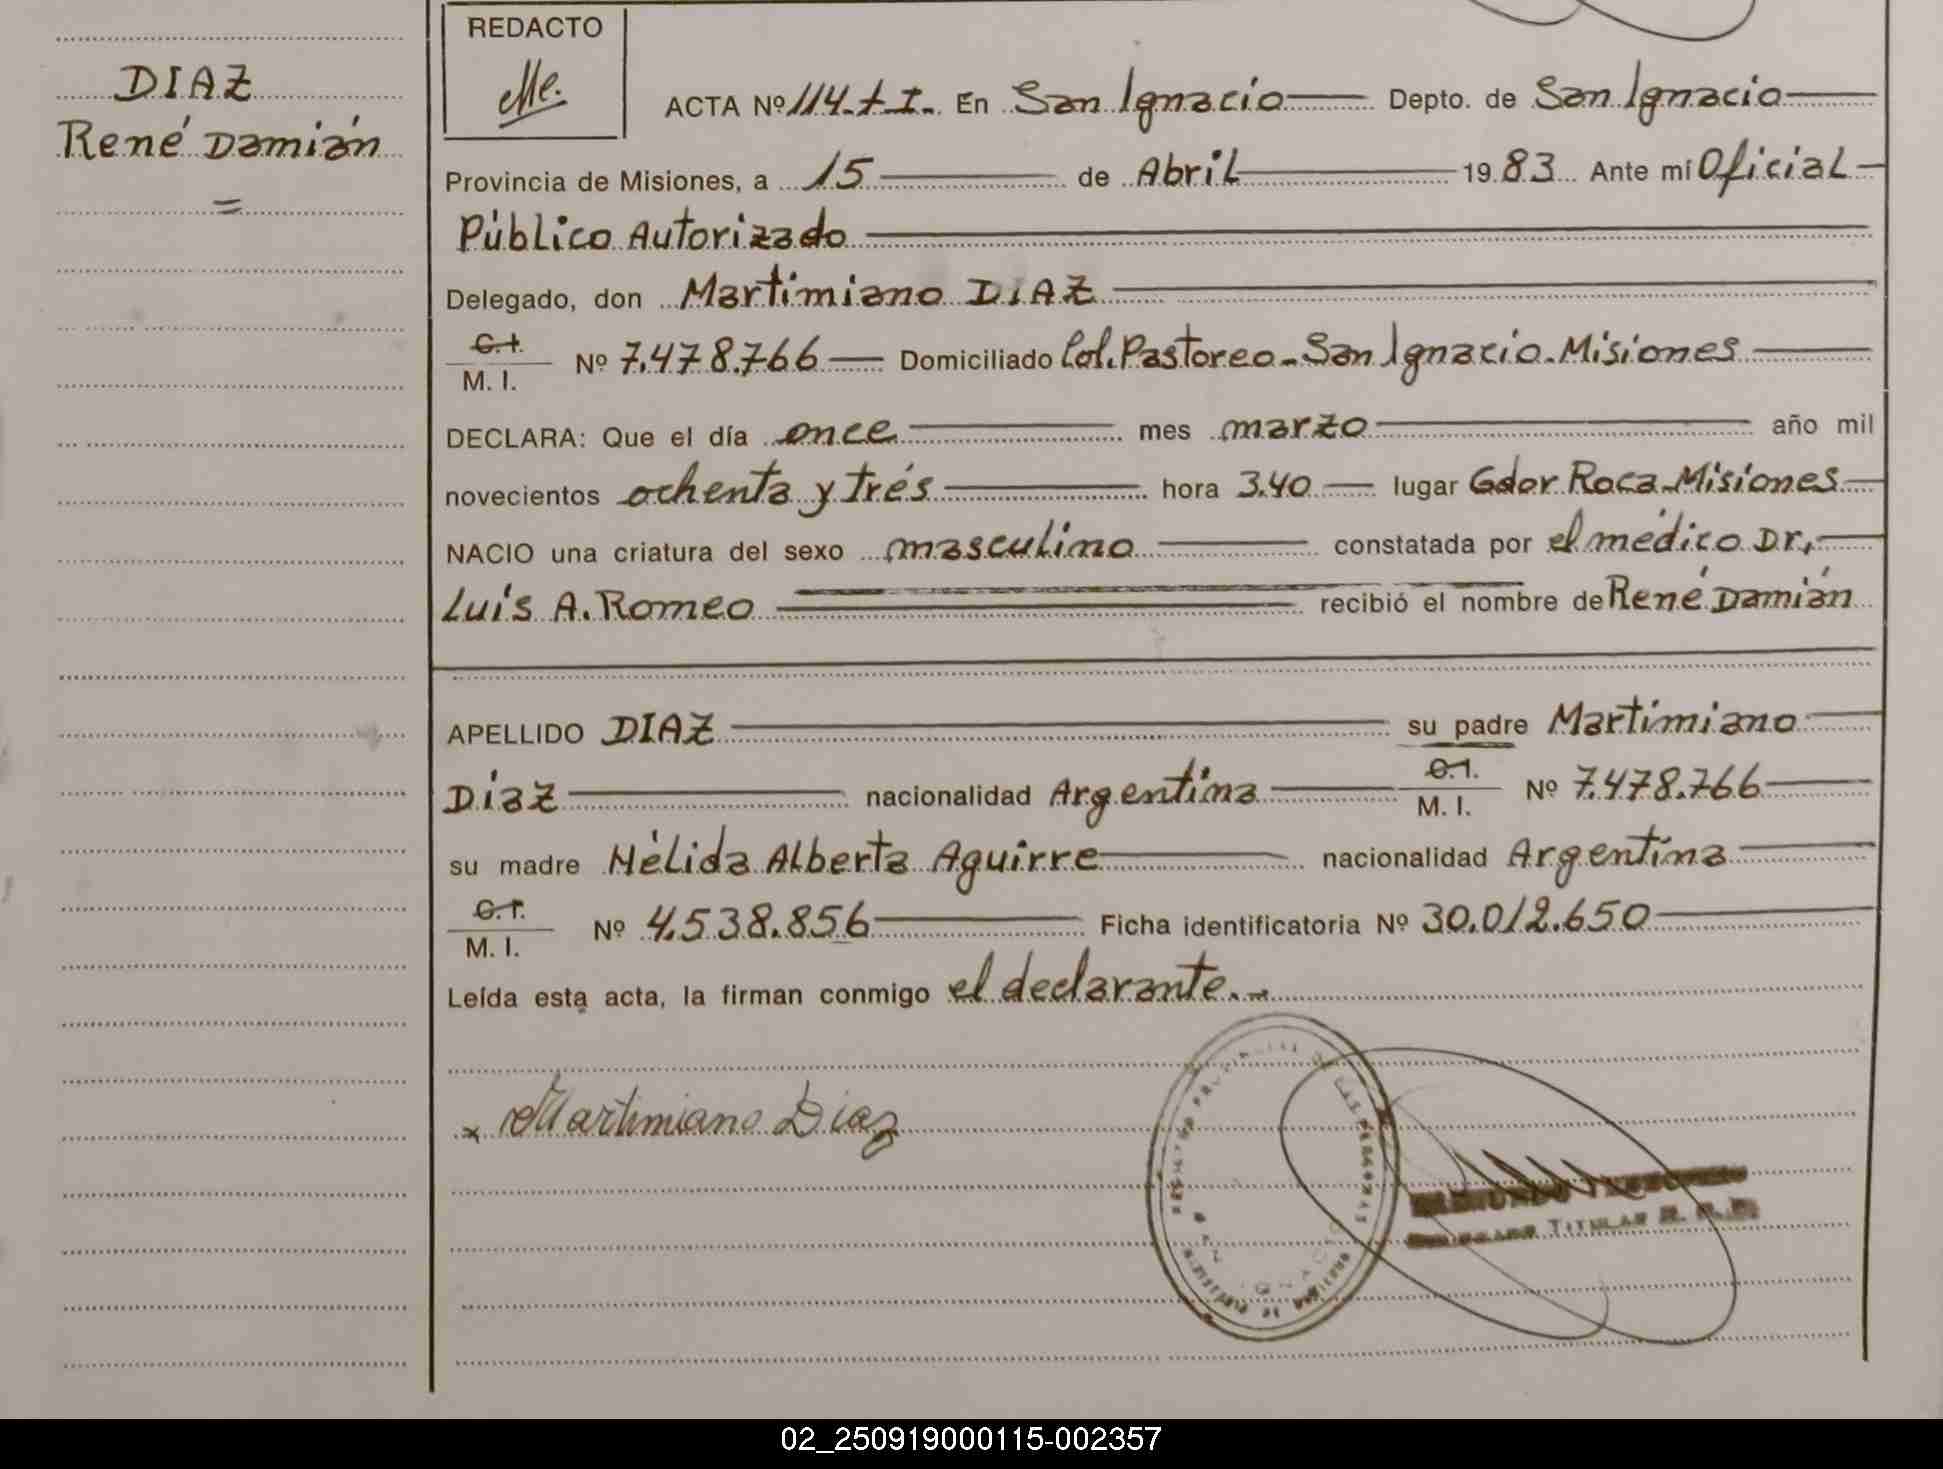 REDACTO
Me.
DIAZ
René Damián
=
ACTA Nº 114-tI- En San Ignacio Depto. de San Ignacio
Provincia de Misiones, a 15 de Abril 1983 Ante mí Oficial
Público Autorizado
Delegado, don Martimiano DIAZ
C.I.
M. I. Nº 7.478.766 Domiciliado Col. Pastoreo-San Ignacio-Misiones
DECLARA: Que el día once mes marzo año mil
novecientos ochenta y trés hora 3.40 lugar Gdor Roca-Misiones
NACIO una criatura del sexo masculino constatada por el médico Dr,
Luis A. Romeo recibió el nombre de René Damián
APELLIDO DIAZ su padre Martimiano
Diaz nacionalidad Argentina C.I. M. I. Nº 7.478.766
su madre Hélida Alberta Aguirre nacionalidad Argentina
C.I.
M. I. Nº 4.538.856 Ficha identificatoria Nº 30.012.650
Leída esta acta, la firman conmigo el declarante.-
x Martimiano Diaz
TITULAR
02_250919000115-002357